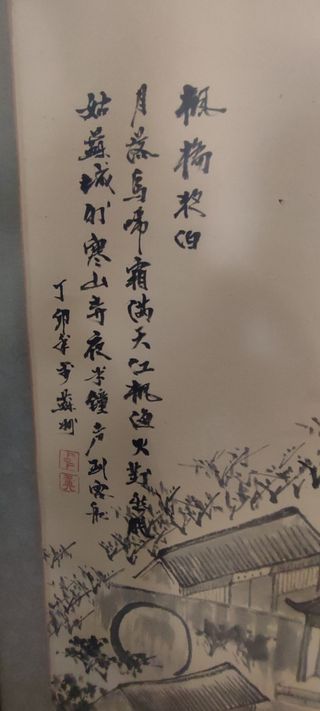 枫橋夜泊
月落烏啼霜满天江枫渔火對愁眠
姑蘇城外寒山寺夜半鐘声到客船
丁卯年 蘇州